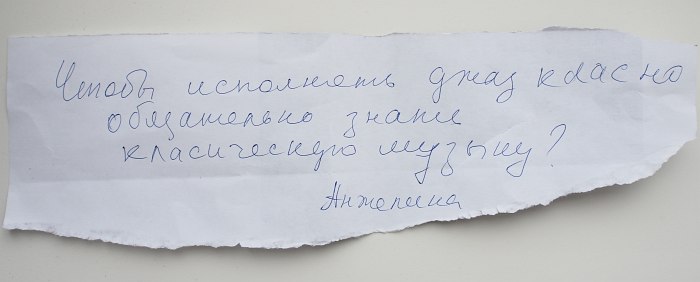 Чтобы исполнять джаз класно
обязательно знать
класическую музыку?
Анжелина